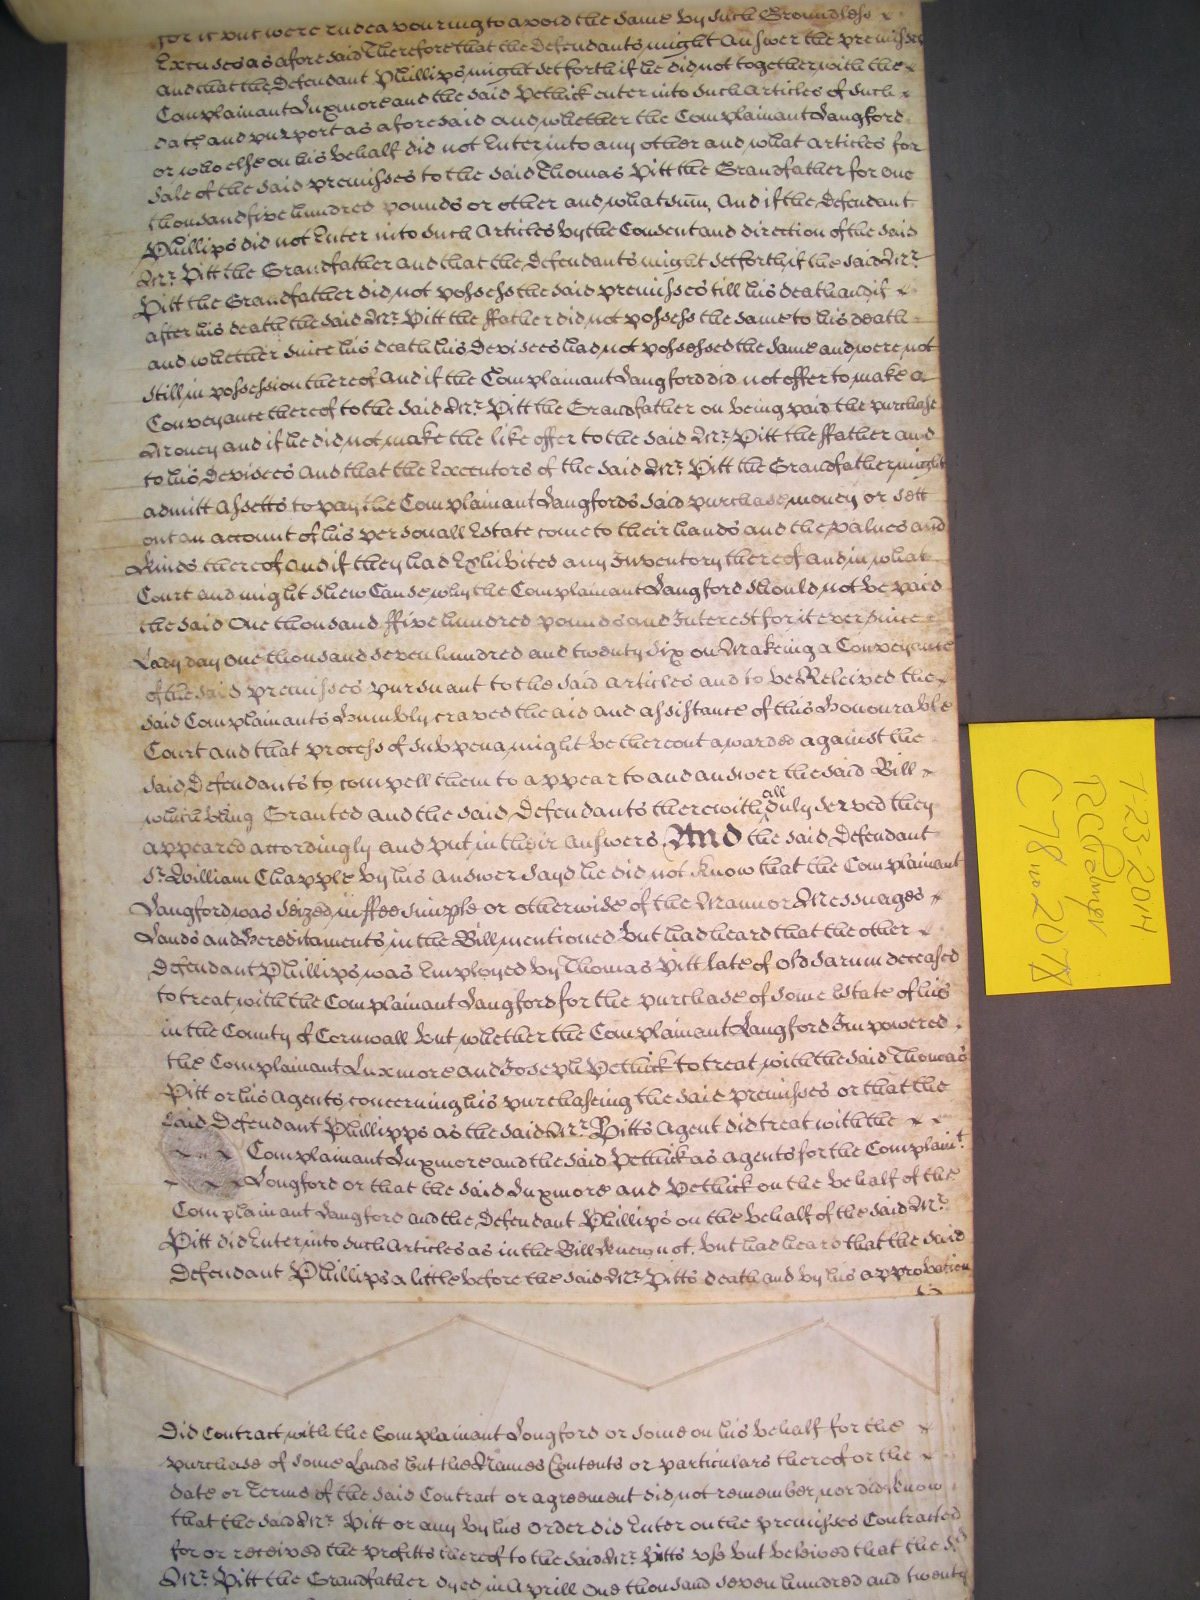 for it but were endeavouring to avoid the same by such Groundless
Excuses as aforesaid Therefore that the Defendants might Answer the premisses
and that the Defendant Phillips might set forth if he did not together with the
Complainant Luxmore and the said Pethick enter into such Articles of such
date and purport as aforesaid and whether the Complainant Langford
or who else on his behalf did not Enter into any other and what articles for
Sale of the said premisses to the said Thomas Pitt the Grandfather for one
thousand five hundred pounds or other and what sum, And if the Defendant
Phillips did not Enter into such Articles by the Consent and direction of the said
Mr. Pitt the Grandfather and that the Defendants might set forth if the said Mr.
Pitt the Grandfather did not possess the said premisses till his death and if
after his death the said Mr. Pitt the ffather did not possess the same to his death
and whether since his death his Devisees had not possessed the same and were not
still in possession thereof And if the Complainant Langford did not offer to make a
Conveyance thereof to the said Mr. Pitt the Grandfather on being paid the purchase
Money and if he did not make the like offer to the said Mr. Pitt the ffather and
to his Devisees And that the Executors of the said Mr. Pitt the Grandfather might
admitt Assetts to pay the Complainant Langfords said purchase money or sett
out an account of his personall Estate come to their hands and the values and
kinds thereof And if they had Exhibited any Inventory thereof and in what
Court and might shew Cause why the Complainant Langford should not be paid
the said One thousand ffive hundred pounds and Interest for it ever since
Lady day one thousand seven hundred and twenty six on Makeing a Conveyance
of the said premisses pursuant to the said articles and to be Releived the
said Complainants humbly craved the aid and assistance of this honourable
Court and that process of Subpena might be thereout awarded against the
said Defendants to compell them to appear to and answer the said Bill
which being Granted and the said Defendants therewith all duly served they
appeared accordingly and put in their Answers And the said Defendant
Sr. William Chapple by his Answer sayd he did not know that the Complainant
Langford was seized in ffee simple or otherwise of the Mannor Messuages
Lands and hereditaments in the Bill mentioned but had heard that the other
Defendant Phillips was Employed by Thomas Pitt late of Old Sarum deceased
to treat with the Complainant Langford for the purchase of some Estate of his
in the County of Cornwall but whether the Complainant Langford Impowered
the Complainant Luxmore and Joseph Pethick to treat with the said Thomas
Pitt or his Agents concerning his purchaseing the said premisses or that the
said Defendant Phillipps as the said Mr. Pitts Agent did treat with the
Complainant Luxmore and the said Pethick as agents for the Complaint.
Langford or that the said Luxmore and Pethick on the behalf of the
Complainant Langford and the Defendant Phillips on the behalf of the said Mr.
Pitt did Enter into such Articles as in the Bill knew not, but had heard that the said
Defendant Phillips a little before the said Mr. Pitts death and by his approbation
Did Contract with the Complainant Langford or some on his behalf for the
purchase of some Lands but the Names Contents or particulars thereof or the
date or Terms of the said Contract or agreement did not remember, nor did know
that the said Mr. Pitt or any by his order did Enter on the premisses Contracted
for or received the profitts thereof to the said Mr. Pitts use but beleived that the sd.
Mr. Pitt the Grandfather dyed in Aprill One thousand seven hundred and twenty
7-23-2014
C78 no 2078